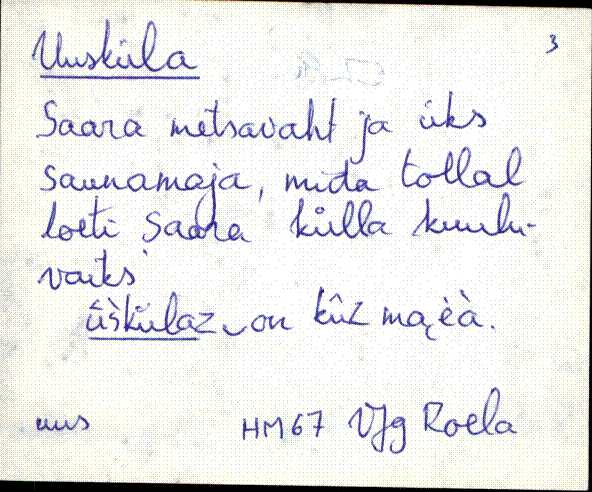 Uusküla 3
Saara metsavaht ja üks
saunamaja, mida tollal
loeti Saara külla kuulu-
vaiks
on
uus HM67 VJg Roela